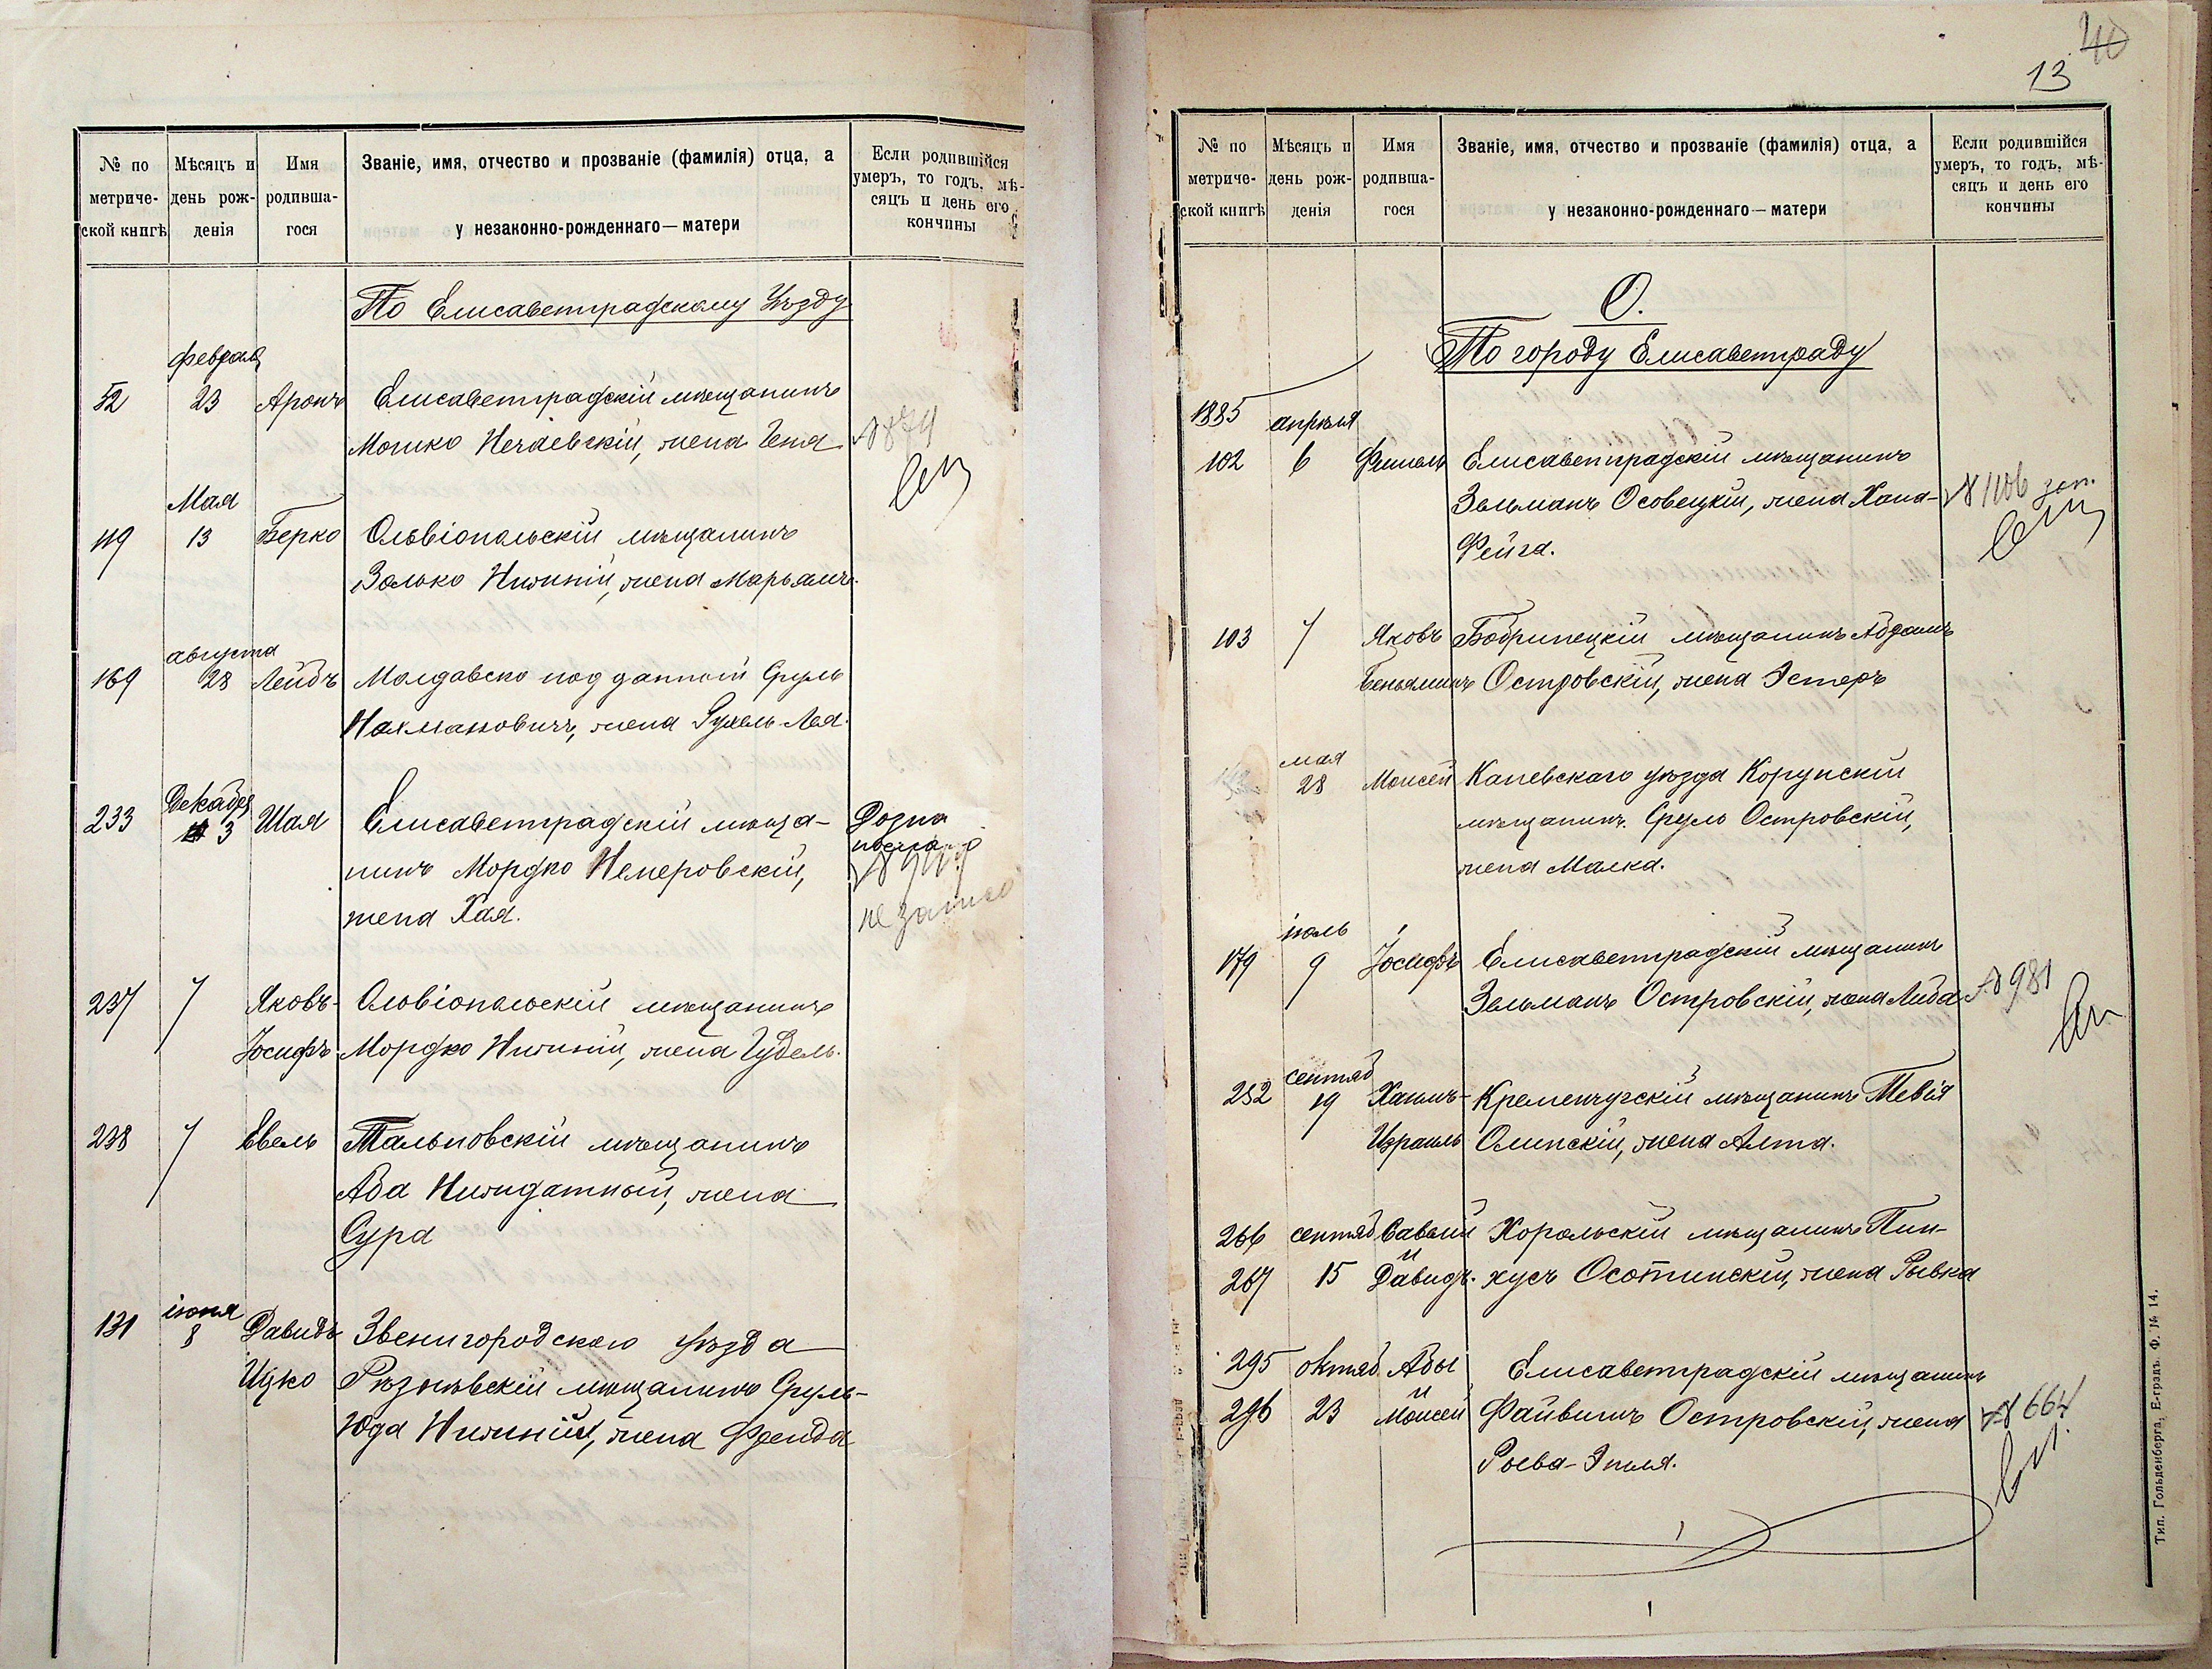 № по метриче-ской книгѣ
Мѣсяцъ и день рож-денія
Имя родивша-гося
Званіе, имя, отчество и прозваніе (фамилія) отца, а
у незаконно-рожденнаго—матери
Если родившійся умеръ, то годъ, мѣ-сяцъ и день его кончины
По Елисаветградскому Уѣзду
февраля
52 23 Аронъ Елисаветградскій мѣщанинъ
Мошко Нечаевскій, жена Геня №874
Мая
119 13 Берко Ольвіопольскій мѣщанинъ
Залько Нижній, жена Марьямъ.
августа
169 28 Лейбъ Молдавско подданный Сруль
Нахмановичъ, жена Рухель-Лея.
Декабря
233 3 Шая Елисаветградскій мѣща-
нинъ Мордко Немеровскій,
жена Хая.
237 7 Яковъ- Ольвіопольскій мѣщанинъ
Іосифъ Мордко Нижній, жена Гудель.
238 7 Евель Тальновскій мѣщанинъ
Аба Нижидатный, жена
Сура
іюня
131 8 Давидъ Звенигородскаго уѣзда
Ицко Рѣзыѣвскій мѣщанинъ Сруль-
Юда Нижній, жена Фрейда
40
13
№ по метриче-ской книгѣ
Мѣсяцъ и день рож-денія
Имя родивша-гося
Званіе, имя, отчество и прозваніе (фамилія) отца, а
у незаконно-рожденнаго—матери
Если родившійся умеръ, то годъ, мѣ-сяцъ и день его кончины
О.
По городу Елисаветграду
1885 апрѣля
102 6 Фишель Елисаветградскій мѣщанинъ
Зельманъ Осовецкій, жена Хана- №1106 зап.
Фейга.
103 7 Яковъ Бобринецкій мѣщанинъ Абрамъ
Беньяминъ Островскій, жена Эстеръ
мая
28 Моисей Каневскаго уѣзда Корсунскій
мѣщанинъ Сруль Островскій,
жена Малка.
іюль
179 9 Іосифъ Елисаветградскій мѣщанинъ
Зельманъ Островскій, жена Либа №981
сентяб
252 19 Хаимъ- Кременчугскій мѣщанинъ Тевія
Израиль Олинскій, жена Алта.
266 сентяб Савелій Хорольскій мѣщанинъ Пин-
и
267 15 Давидъ. хусъ Осотинскій, жена Рывка
295 октяб Абы Елисаветградскій мѣщанинъ
и
296 23 Моисей Файвишъ Островскій, жена №664
Рысва-Эпля.
Тип. Гольденберга, Е-градъ. Ф. № 14.